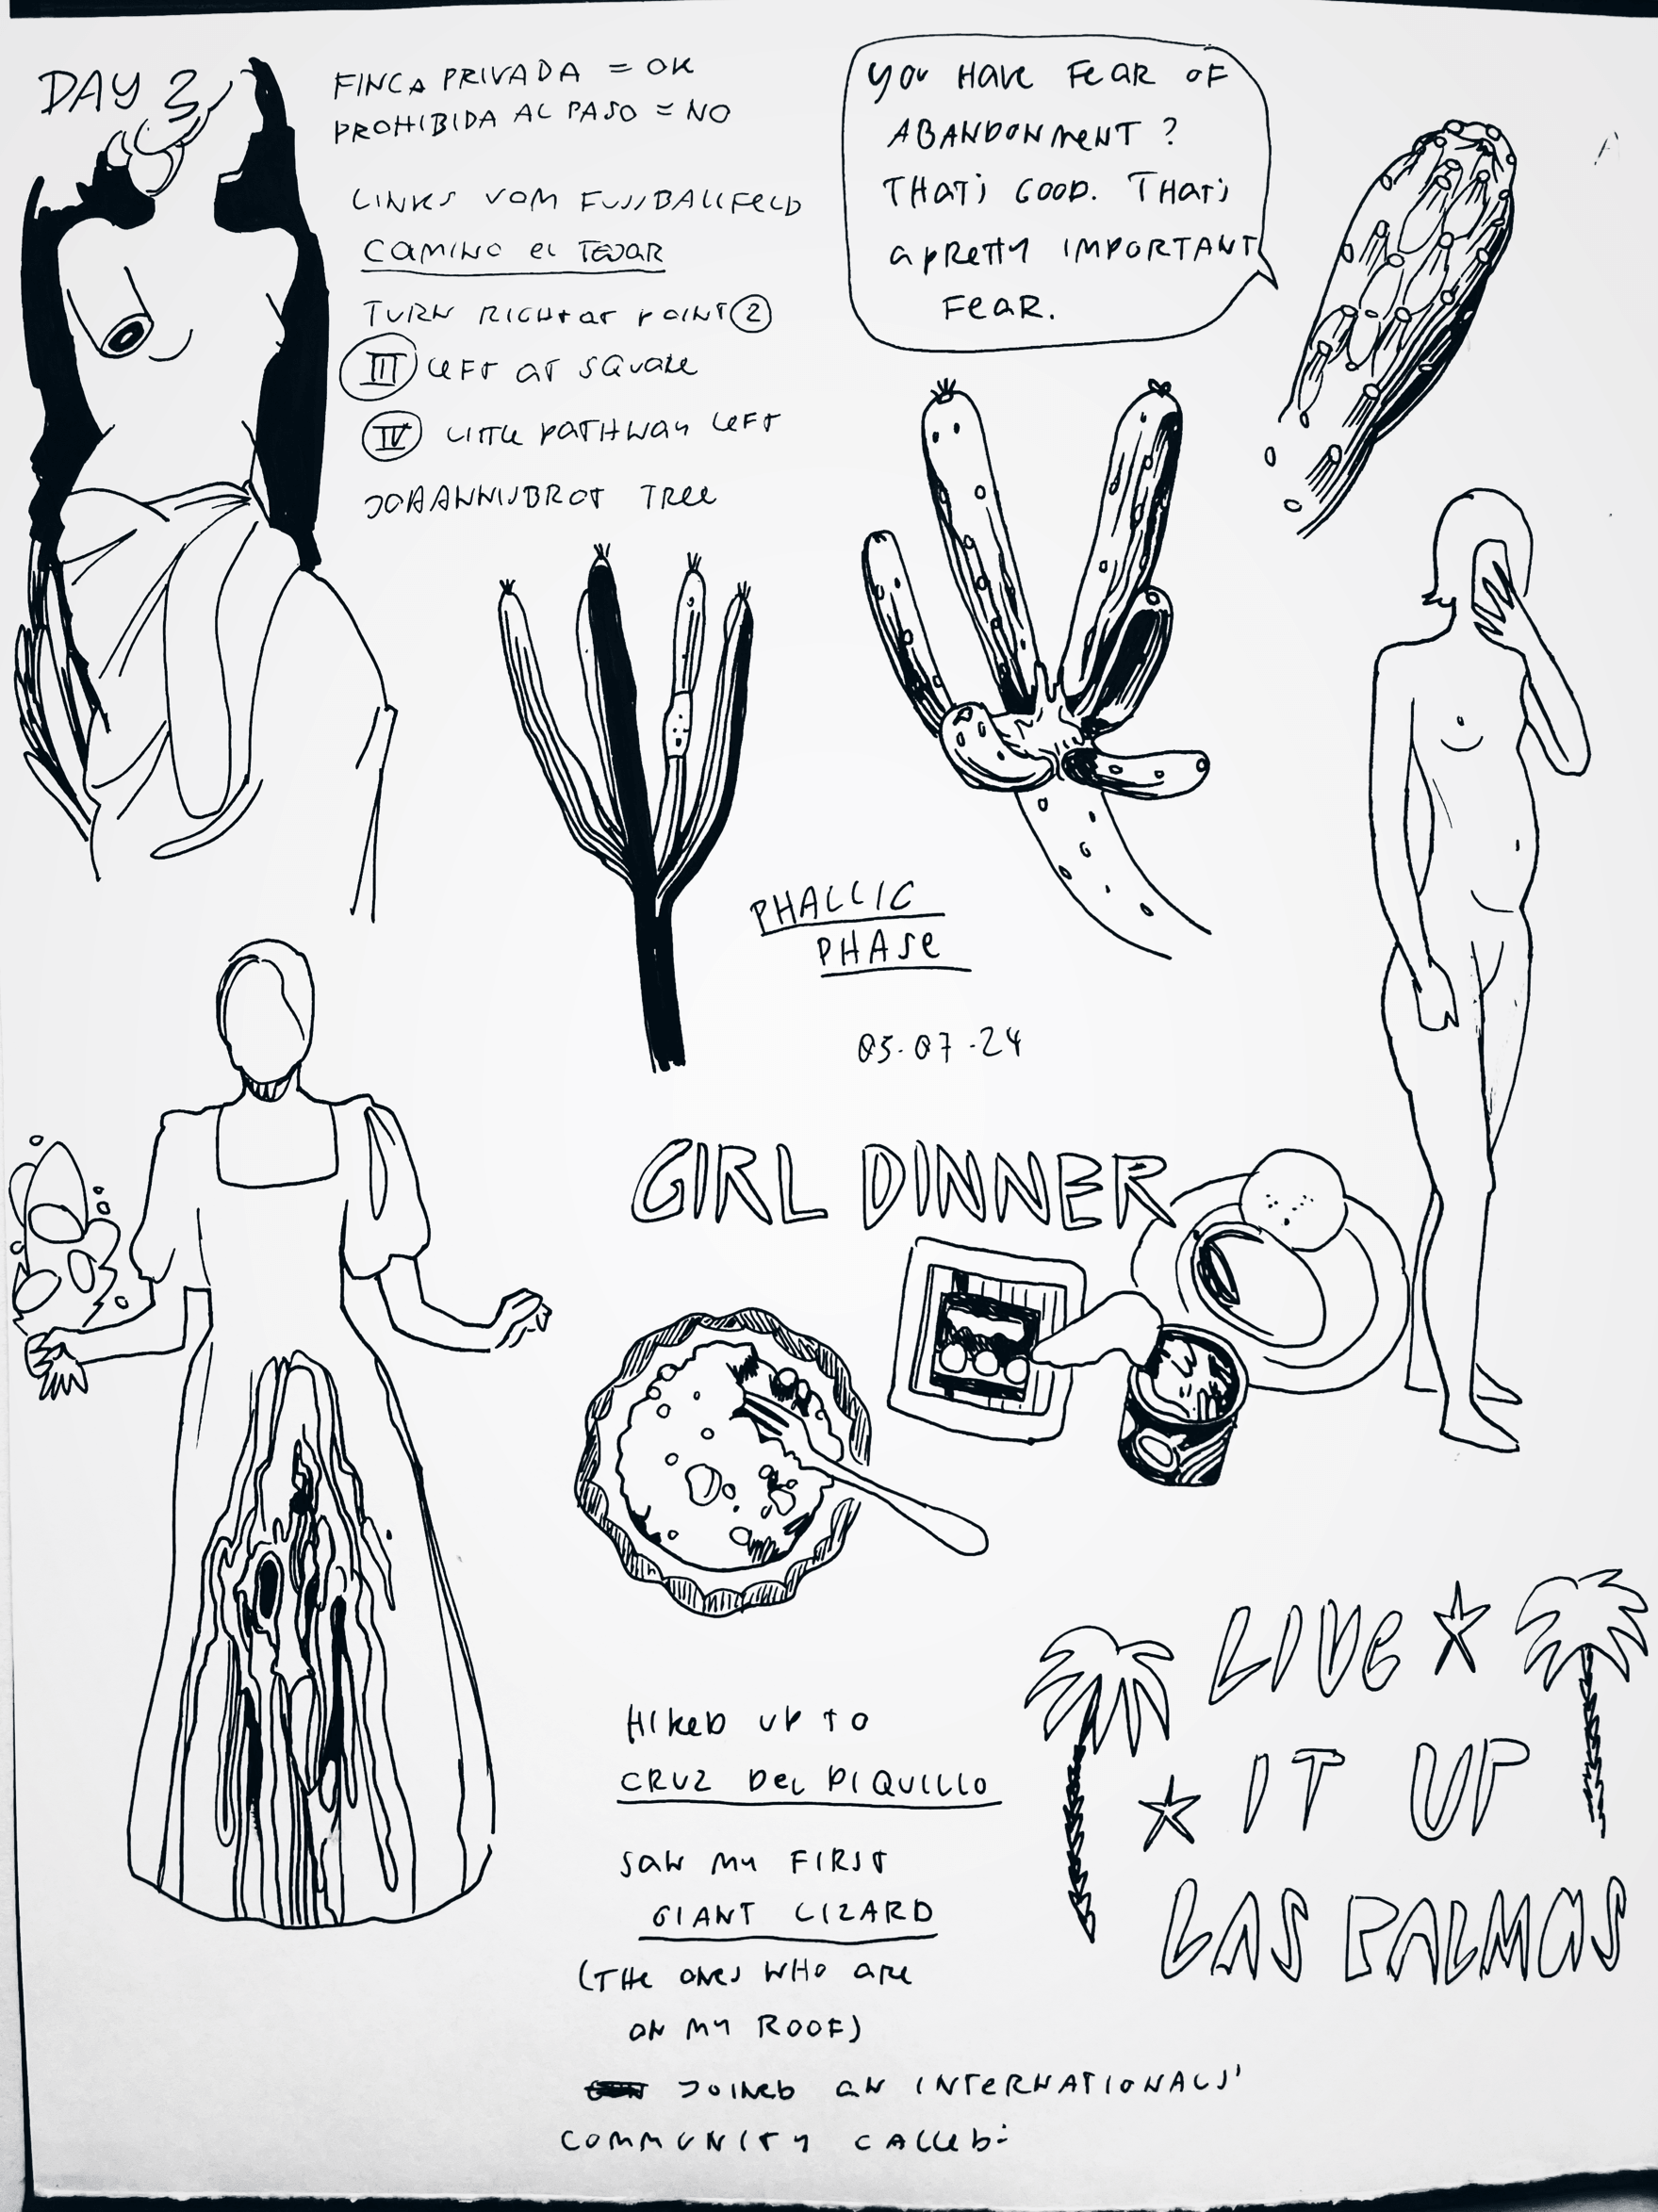 DAY 3
FINCA PRIVADA = OK
PROHIBIDA AL PASO = NO
LINKS VOM FUSSBALLFELD
CAMINO EL TEJAR
TURN RIGHT AT POINT 2
III LEFT AT SQUARE
IV LITTLE PATHWAY LEFT
JOHANNISBROT TREE
YOU HAVE FEAR OF
ABANDONMENT?
THAT'S GOOD. THAT'S
A PRETTY IMPORTANT
FEAR.
PHALLIC
PHASE
05.07.24
GIRL DINNER
HIKED UP TO
CRUZ DEL PIQUILLO
SAW MY FIRST
GIANT LIZARD
(THE ONES WHO ARE
ON MY ROOF)
JOINED AN INTERNATIONALS'
COMMUNITY CALLED:
LIVE
IT UP
LAS PALMAS